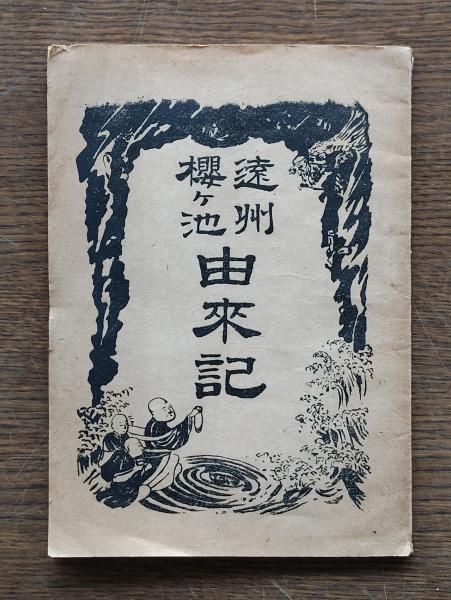 遠州
櫻ヶ池
由來記